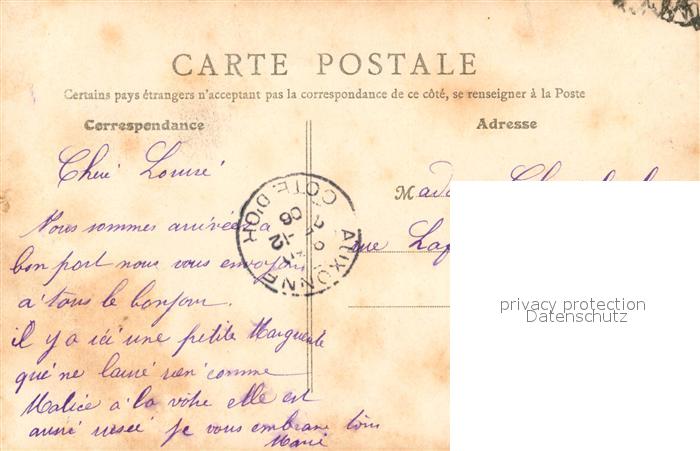 CARTE POSTALE
Certains pays étrangers n'acceptant pas la correspondance de ce côté, se renseigner à la Poste
Correspondance
Adresse
Cheré Louisé
Nous sommes arrivées a
bon port nous vous envoyons
a' tous le bonjour.
il y a ici une petite Marguerite
qui ne laisse rien comme
Malice a' la votre elle est
aussi rusée je vous embrasse tous
Marie
AUXONNE
COTE D'OR
12
06
Mada
rue Laf
privacy protection
Datenschutz